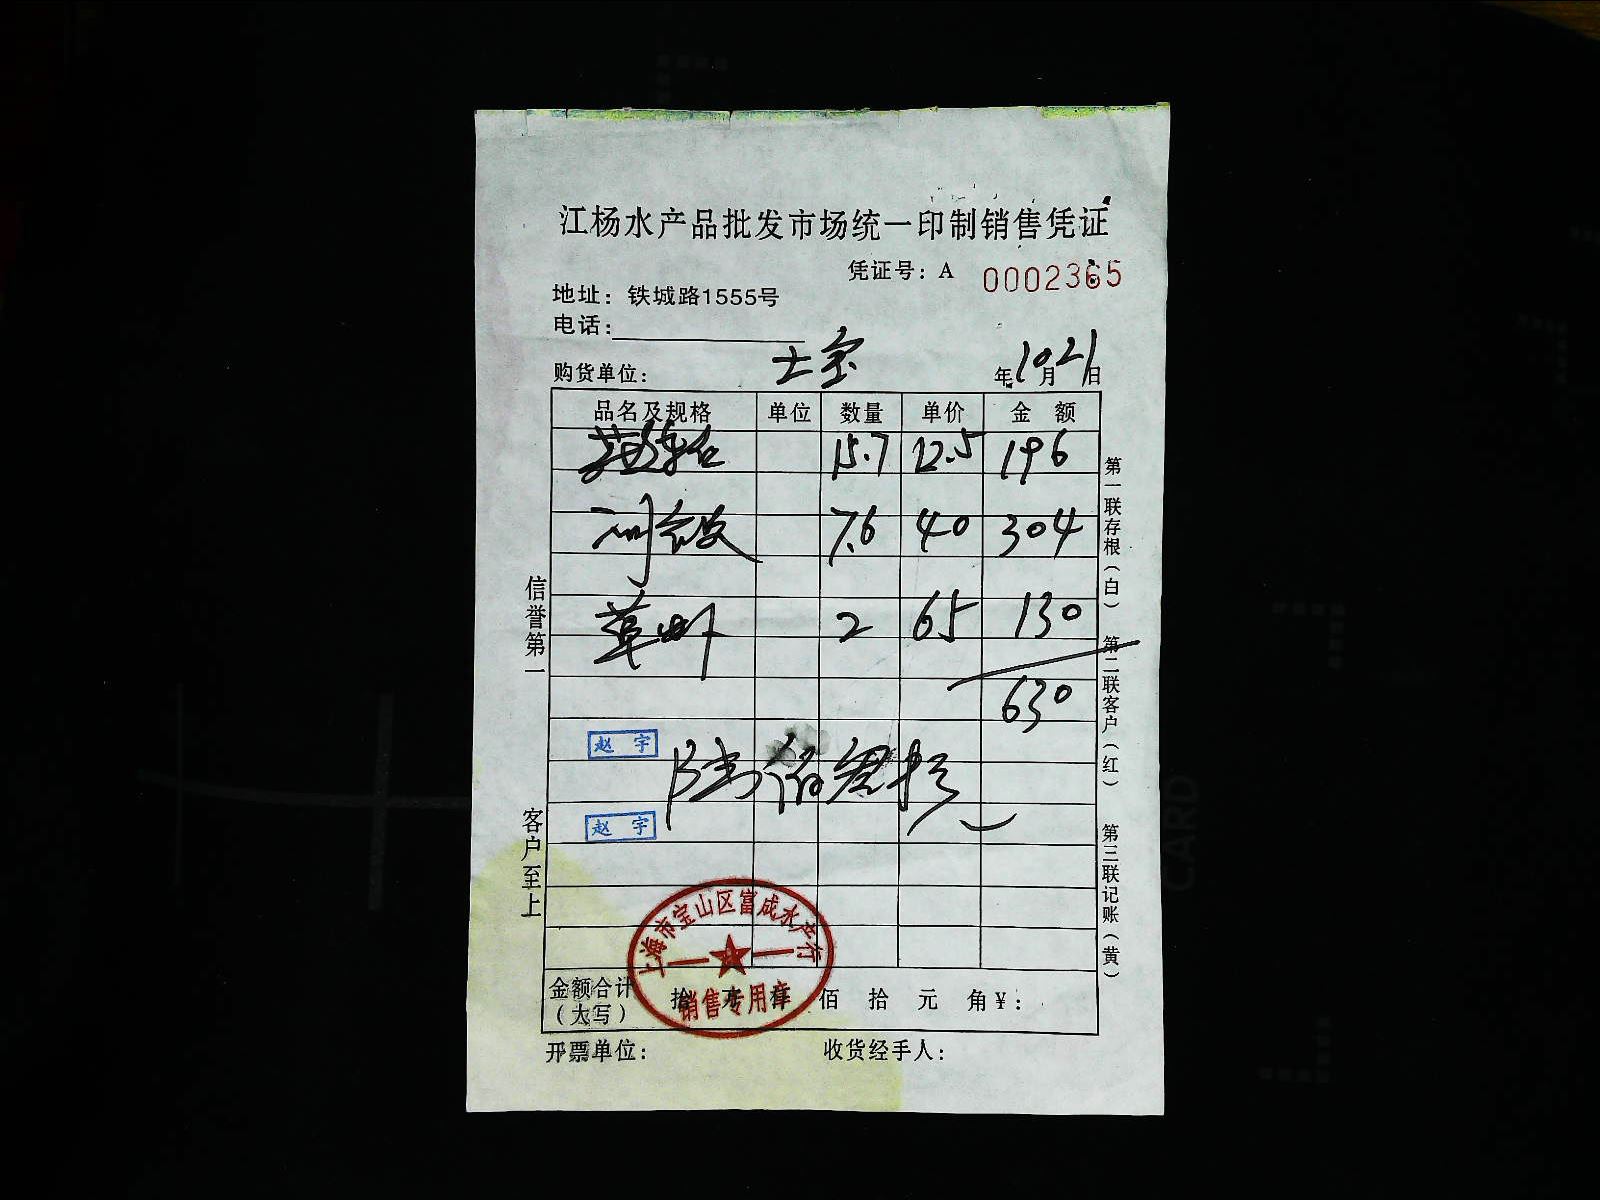 江杨水产品批发市场统一印制销售凭证
凭证号：A 0002365
地址：铁城路1555号
电话：
购货单位： 士宝 年10月21日
品名及规格 单位 数量 单价 金额
15.7 12.5 196
7.6 40 304
草虾 2 65 130
630
赵宇
陆佰叁拾
赵宇
上海市宝山区富成水产行
销售专用章
金额合计（大写） 拾 万 仟 佰 拾 元 角 ¥：
开票单位： 收货经手人：
信誉第一
客户至上
第一联存根（白）
第二联客户（红）
第三联记账（黄）